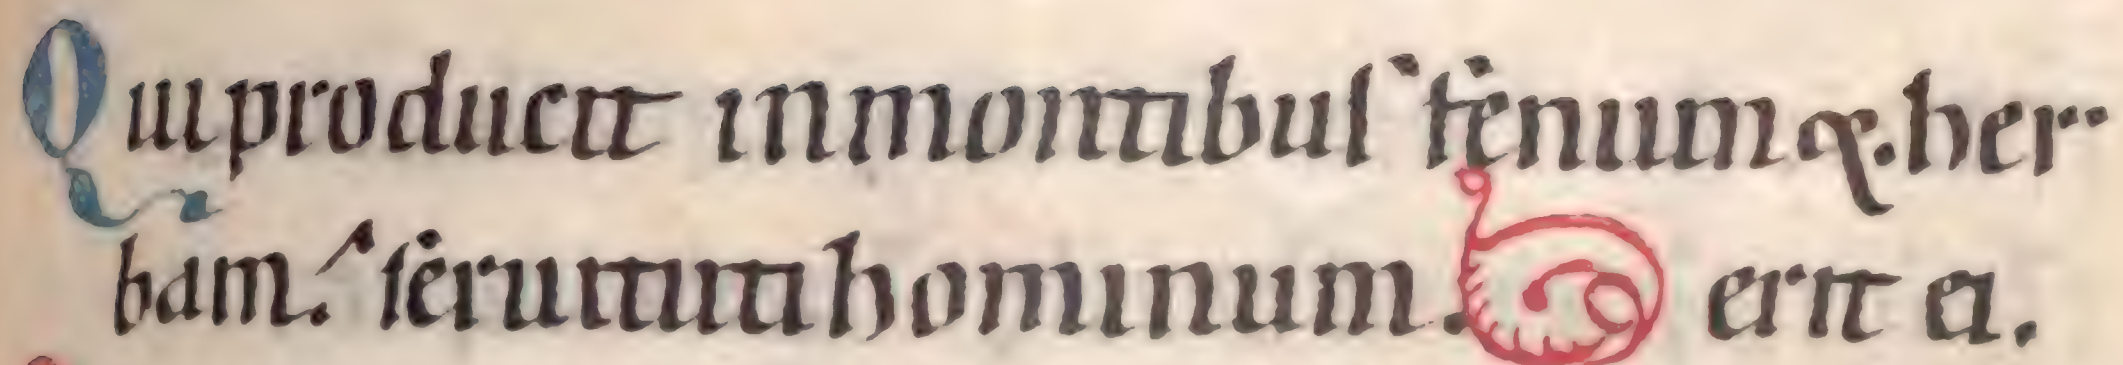 Qui producit in montibuſ fenum &. her
bam. ſeruituti hominum.